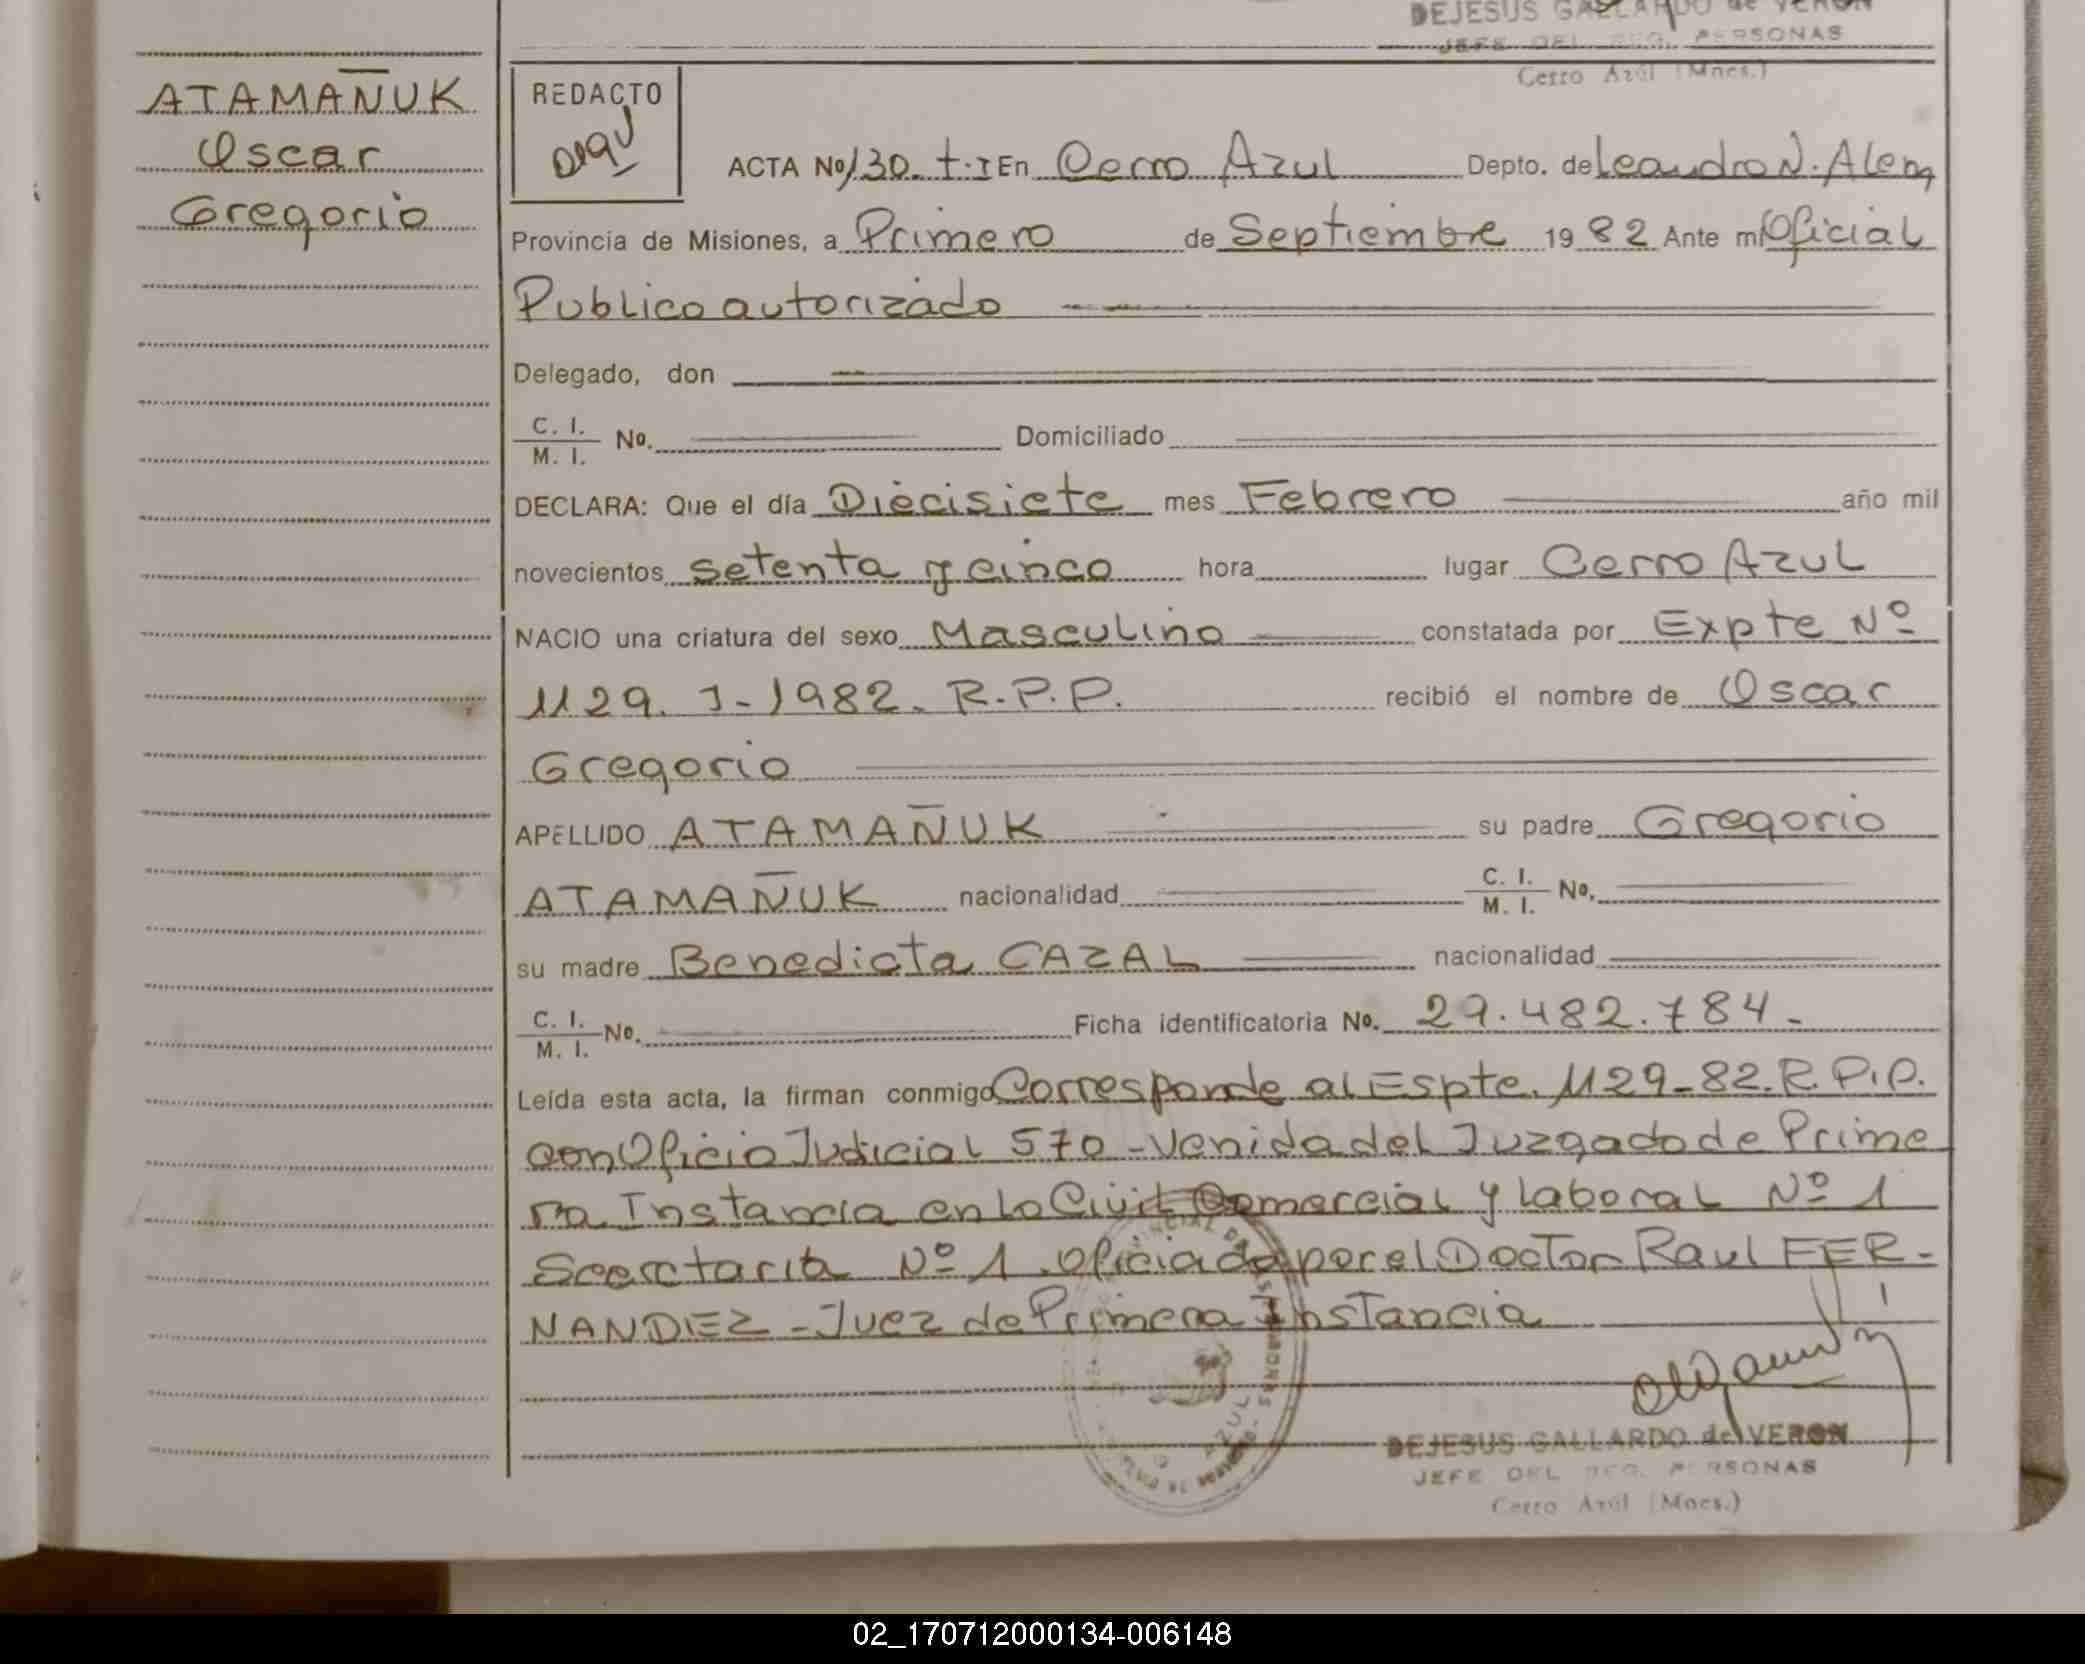 DEJESUS GALLARDO de VERON
JEFE DEL REG. PERSONAS
Cerro Azúl (Mnes.)
ATAMAÑUK
Oscar
Gregorio
REDACTO
ACTA No 130. t. I En Cerro Azul Depto. de Leandro N. Alem
Provincia de Misiones, a Primero de Septiembre 1982 Ante mí Oficial
Publico autorizado
Delegado, don
C. I.
M. I. No. Domiciliado
DECLARA: Que el día Diecisiete mes Febrero año mil
novecientos setenta y cinco hora lugar Cerro Azul
NACIO una criatura del sexo Masculino constatada por Expte Nº
1129. J-1982. R.P.P. recibió el nombre de Oscar
Gregorio
APELLIDO ATAMAÑUK su padre Gregorio
ATAMAÑUK nacionalidad C. I.
M. I. No.
su madre Benedicta CAZAL nacionalidad
C. I.
M. I. No. Ficha identificatoria No. 29.482.784-
Leída esta acta, la firman conmigo Corresponde al Espte. 1129-82. R.P.P.
con Oficio Judicial 570 - Venida del Juzgado de Prime
ra Instancia en lo Civil Comercial y laboral Nº 1
Secretaria Nº 1. Oficiada por el Doctor Raul FER-
NANDEZ - Juez de Primera Instancia
DEJESUS GALLARDO de VERON
JEFE DEL REG. PERSONAS
Cerro Azúl (Mnes.)
02_170712000134-006148